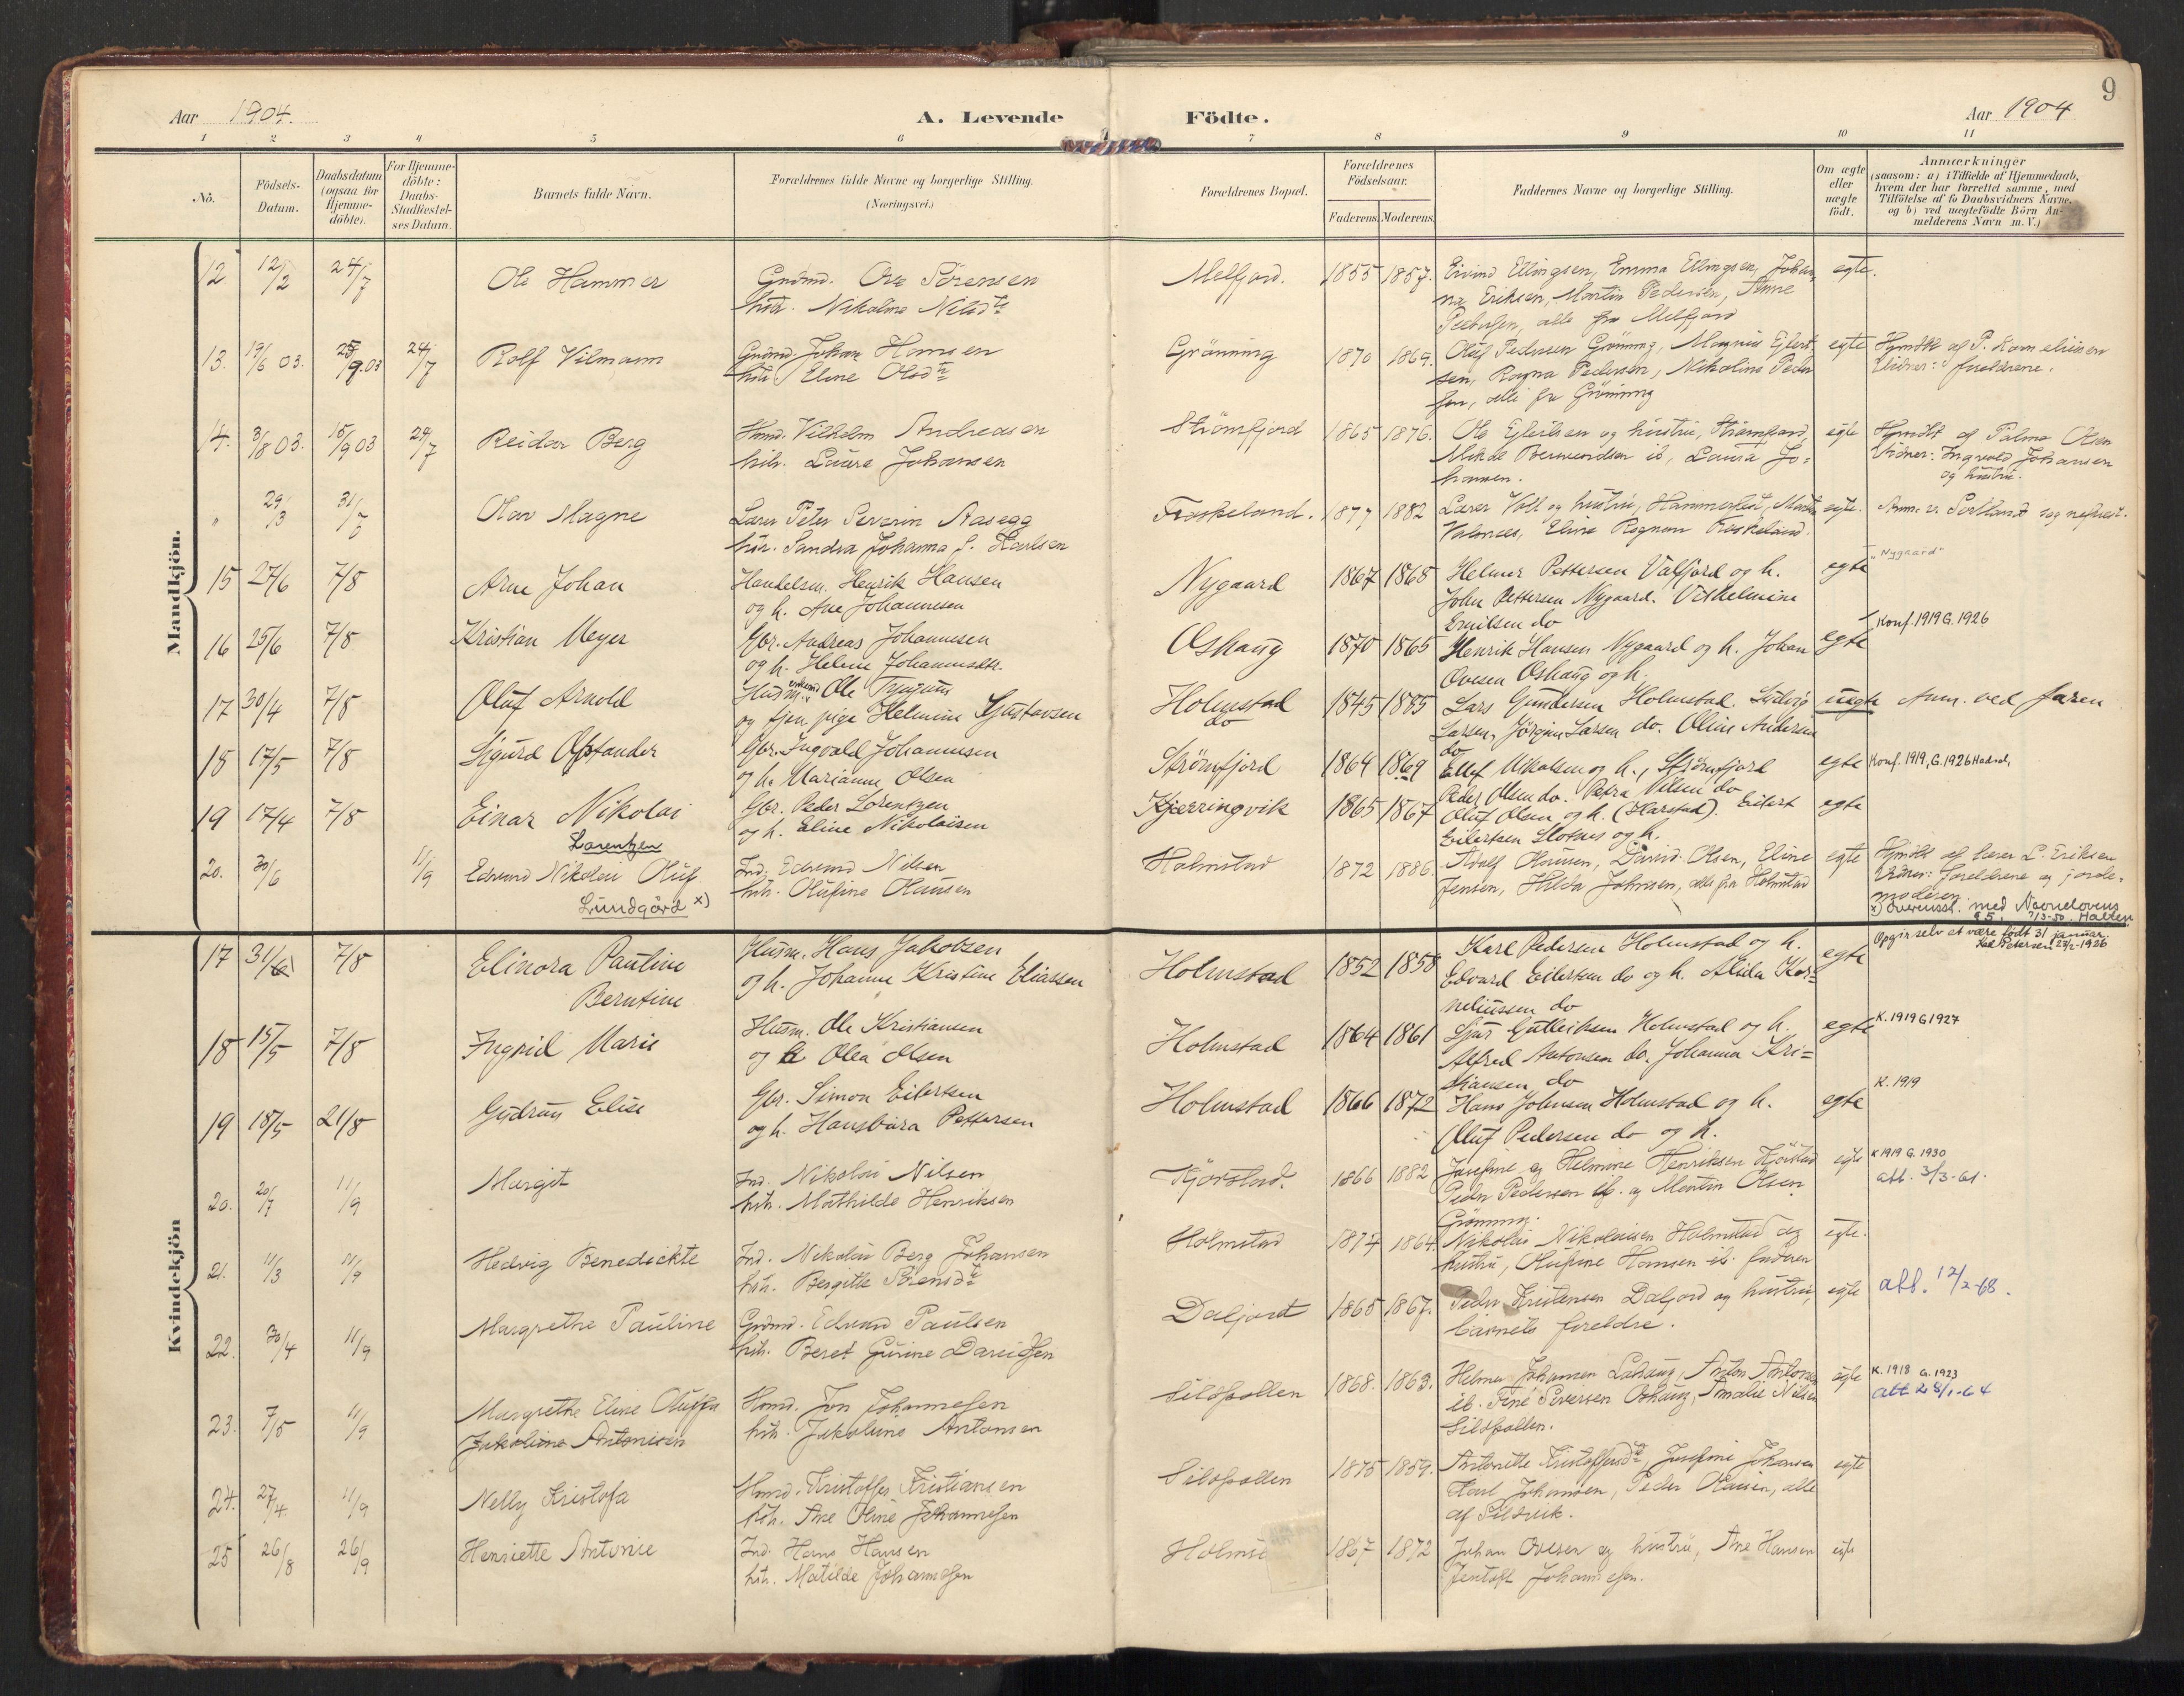 9
Aar 1904.
A. Levende Födte.
Aar 1904
1 2 3 4 5 6 7 8 9 10 11
No.
Födsels-
Datum.
Daabsdatum
(ogsaa for
Hjemme-
döbte).
For Hjemme-
döbte:
Daabs-
Stadfæstel-
ses Datum.
Barnets fulde Navn.
Forældrenes fulde Navne og borgerlige Stilling.
(Næringsvei.)
Forældrenes Bopæl.
Forældrenes
Födselsaar.
Faderens. Moderens.
Faddernes Navne og borgerlige Stilling.
Om ægte
eller
uægte
födt.
Anmærkninger
(saasom: a) i Tilfælde af Hjemmedaab,
hvem der har forrettet samme, med
Tilföielse af to Daabsvidners Navne,
og b) ved uægtefödte Börn An-
melderens Navn m. V.)
Mandkjön.
12 12/2 24/7 Ole Hammer Gaardmd. Ove Sørensen Melfjord. 1855 1857. Eivind Ellingsen, Emma Ellingsen, Johan- egte.
hstr. Nikoline Nilsdtr
na Eriksen, Martin Pedersen, Anne
Pedersen, alle fra Melfjord
13. 19/6 03. 25/9.03 24/7 Rolf Vilmann Gaardmd. Johan Hansen Grønning 1870 1869. Oluf Pedersen Grønning, Magnus Eilert- egte Hjmdbt af P. Korneliusen
hstr. Eline Olsdtr
sen, Ragna Pedersen, Nikoline Peder
Vidner: foreldrene.
sen, alle fra Grønning
14. 3/8 03. 15/9 03 24/7 Reidar Berg Husmd. Vilhelm Andreasen Strømfjord 1865 1876. Ole Eilertsen og hustru, Strømfjord, egte Hjmdbt af Palma Olsen
hstr. Laura Johansen
Laura Jo-
Vidner: Ingvald Johansen
hansen.
og hustru.
" 29/3 31/7 Olav Magne Lærer Peter Severin Aasegg Froskeland. 1877 1882 Lærer Voll og hustru, Hammerfest, egte.
hstr. Sandra Johanna f. Karlsen
15 27/6 7/8 Arne Johan Handelsm. Henrik Hansen Nygaard 1867 1868 Helmer Pettersen Valfjord og h. egte "Nygaard"
og h. Ane Johannesen
John Pettersen Nygaard. Vilhelmine
Emilsen do
16 25/6 7/8 Kristian Meyer Gbr. Andreas Johannesen Oshaug 1870 1865 Henrik Hansen Nygaard og h. Johan egte Konf. 1919 G. 1926
og h. Helene Johannesdtr.
Ovesen Oshaug og h.
17 30/4 7/8 Oluf Arnold Husm. enkemd Ole Holmstad 1845 1885 Lars Gundersen Holmstad. Ludvig uegte Anm. ved faren
og tjen. pige Helmine Gustavsen do
Larsen, Jørgen Larsen do. Oline Andersen
do
18 17/5 7/8 Sigurd Gbr. Ingvald Johannesen Strømfjord 1864 1869 Ellef Nikolaisen og h., Strømfjord egte Konf. 1919, G. 1926 Hadsel,
og h. Marianne Olsen
Peder Olsen do. Petra Nilsen do
19 17/4 7/8 Einar Nikolai Gbr. Peder Lorentzen Kjærringvik 1865 1867 Oluf Olsen og h. (Harstad). Eilert egte
Lorentzen
og h. Eline Nikolaisen
Eilertsen Slotnes og h.
20. 30/6 11/9 Edvard Nikolai Oluf Ind. Edvard Nilsen Holmstad 1872 1886. Adolf Hansen, David Olsen, Eline egte Hjmdbt af lærer L. Eriksen
Lundgård x)
hstr. Olufine Hansen
Jensen, Hilda Johnsen, alle fra Holmstad
Vidner: foreldrene og jorde-
moderen.
x) Overensst. med Navnelovens
§ 5. 7/3-50. Halten
Kvindekjön
17 31/6 7/8 Elinora Pauline Husm. Hans Jakobsen Holmstad 1852 1858 Karl Pedersen Holmstad og h. egte Opgir selv at være født 31 januar.
Petersen 27/2-1926
Berntine
og h. Johanne Kristine Eliassen
Edvard Eilertsen do og h. Alida Kor-
neliussen do
18 15/5 7/8 Ingrid Marie Husm. Ole Kristiansen Holmstad 1864 1861 Sjur Gulleiksen Holmstad og h. egte K. 1919 G 1927
og h Olea Olsen
Alfred Antonsen do. Johanna Kri-
stiansen do
19 18/5 21/8 Gudrun Elise Gbr. Simon Eilertsen Holmstad 1866 1872 Hans Johnsen Holmstad og h. egte K. 1919
og h. Hansbara Pettersen
Oluf Pedersen do og h.
20. 20/7 11/9 Margit Ind. Nikolai Nilsen Kjørstad. 1866 1882 Josefine og Helmine Henriksen Kjørstad egte K 1919 G. 1930
hstr. Mathilde Henriksen
Peder Pedersen ib. og Martin Olsen
att. 3/3-61.
Grønning.
21. 11/3 11/9 Hedvig Benedickte Ind. Nikolai Berg Johansen Holmstad 1874 1864. Nikolai Nikolaisen Holmstad og egte.
hstr. Bergitte Sørensdtr
hustru, Olufine Hansen ib. faderen
22. 30/4 11/9 Margrethe Pauline Gaardmd. Edvard Paulsen Dalfjord 1865 1867. Peder Kristensen Dalfjord og hustru, egte att. 12/2-68.
hstr. Beret Gurine Davidsen
barnets foreldre.
23. 7/5 11/9 Margrethe Eline Oluffa Husmd. Jon Johannesen Sildpollen 1868. 1863. Helmer Johansen Oshaug, Anton Antonsen egte K. 1918 G. 1923
Jakoline Antonisen
hstr. Jakoline Antonsen
ib. Fine Seversen Oshaug, Amalie Nilsen
att 28/1-64
Sildpollen.
24. 27/4. 11/9 Nelly Kristofa Husmd. Kristoffer Kristiansen Sildpollen 1875 1859. Antonette Kristoffersdtr, Josefine Johansen egte
hstr. Ane Oline Johannesen
Karl Johansen, Peder Hansen, alle
af Sildvik.
25 26/8 26/9 Henriette Antonie Ind. Hans Hansen Holms 1867 1872 Johan Ovesen og hustru, Ane Hansen egte
hstr. Matilde Johannesen
Jentoft Johannesen.